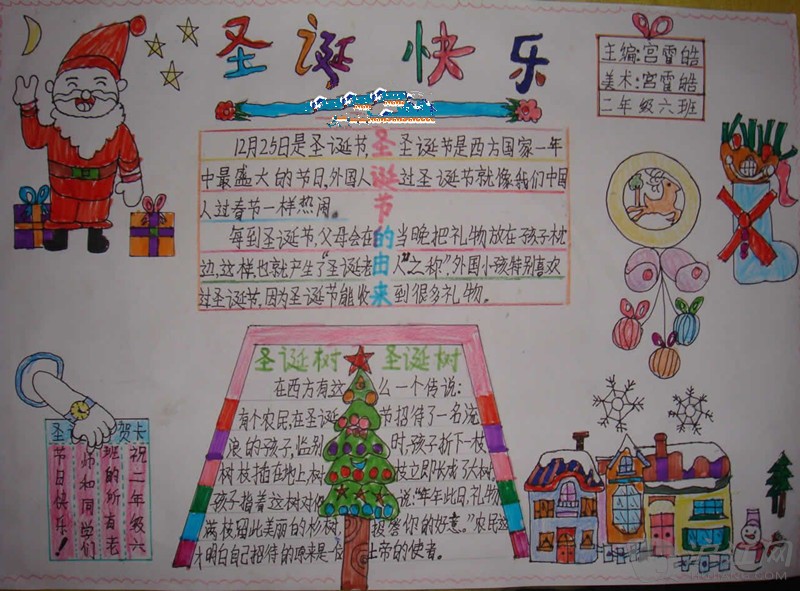 圣诞快乐
主编:宫雷皓
美术:宫雷皓
二年级六班
圣诞节的由来
12月25日是圣诞节,圣诞节是西方国家一年
中最盛大的节日,外国人过圣诞节就像我们中国
人过春节一样热闹。
每到圣诞节,父母会在当晚把礼物放在孩子枕
边,这样也就产生了“圣诞老人”之称”外国小孩特别喜欢
过圣诞节,因为圣诞节能收到很多礼物。
圣诞树 圣诞树
在西方有这么一个传说:
有个农民,在圣诞节招待了一名流
浪的孩子,临别时,孩子折下一枝
树枝插在地上,树枝立即长成了大树,
孩子指着这树对他说:“年年此日,礼物
满枝,留此美丽的杉树,报答你的好意。”农民这
才明白自己招待的原来是一位上帝的使者。
圣 贺卡
祝二年级六
班的所有老
师和同学们
节日快乐!